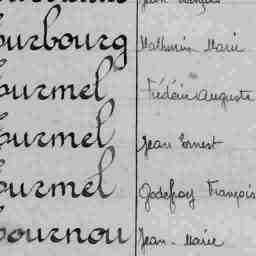 ourbourg Mathurin Marie
ourmel Frédéric Auguste
ourmel Jean Ernest
ourmel Godefroy François
ournou Jean-Marie